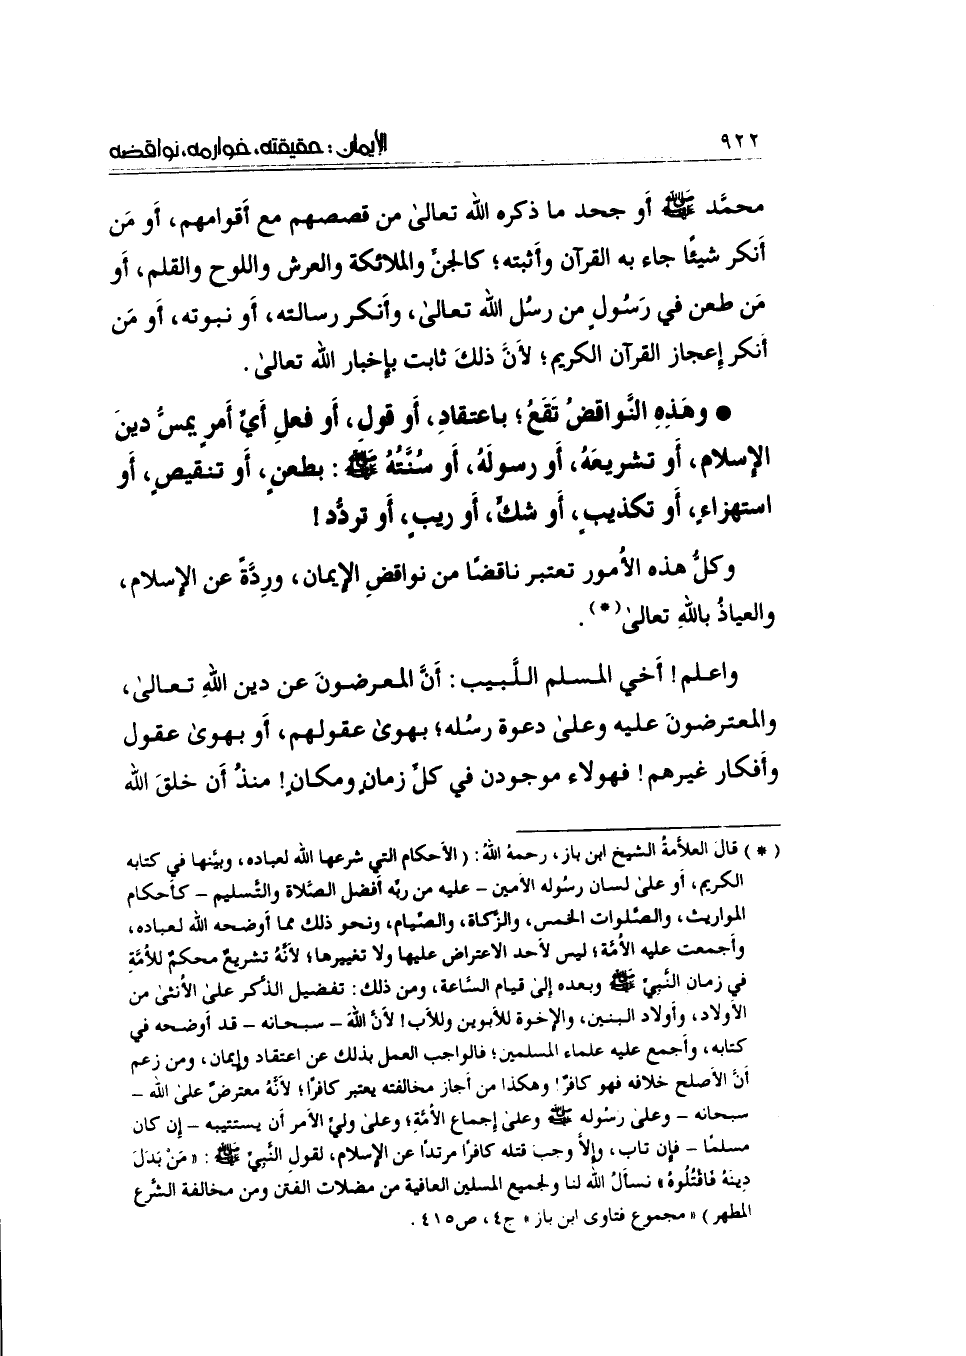 ٩٢٢
الإيمان: حقيقته، خوارمه، نواقضه
محمَّد ﷺ أو جحد ما ذكره الله تعالىٰ من قصصهم مع أقوامهم، أو مَن
أنكر شيئًا جاء به القرآن وأثبته؛ كالجنِّ والملائكة والعرش واللوح والقلم، أو
مَن طعن في رَسُولٍ من رسُل الله تعالىٰ، وأنكر رسالته، أو نبوته، أو مَن
أنكر إعجاز القرآن الكريم؛ لأنَّ ذلكَ ثابت بإخبار الله تعالىٰ.
● وهَذِهِ النَّواقضُ تَقَعُ؛ باعتقادِ، أو قولِ، أو فعلِ أيِّ أمرٍ يمسُّ دينَ
الإسلام، أو تشريعَهُ، أو رسولَهُ، أو سُنَّتُهُ ﷺ: بطعنٍ، أو تنقيصٍ، أو
استهزاءٍ، أو تكذيبٍ، أو شكٍّ، أو ريبٍ، أو تردُّد!
وكلُّ هذه الأُمور تعتبر ناقضًا من نواقضِ الإيمان، ورِدَّةً عن الإسلام،
والعياذُ باللهِ تعالىٰ(*).
واعـلم! أخي المـسلم اللَّبيب: أنَّ المعرضونَ عن دين اللهِ تعـالىٰ،
والمعترضونَ عليه وعلىٰ دعوة رسُله؛ بهوىٰ عقولهم، أو بهوىٰ عقول
وأفكار غيرهم! فهولاء موجودن في كلِّ زمانٍ ومكانٍ! منذُ أن خلقَ الله
(*) قالَ العلاَّمةُ الشيخ ابن باز، رحمهُ اللهُ: (الأحكام التي شرعها الله لعباده، وبيَّنها في كتابه
الكريم، أو علىٰ لسان رسوله الأمين - عليه من ربِّه أفضل الصَّلاة والتَّسليم - كأحكام
المواريث، والصَّلوات الخمس، والزَّكاة، والصِّيام، ونحو ذلك مما أوضحه الله لعباده،
وأجمعت عليه الأمَّة؛ ليس لأحد الاعتراض عليها ولا تغييرها؛ لأنَّهُ تشريعٌ محكمٌ للأُمَّةِ
في زمان النَّبيِّ ﷺ وبعده إلىٰ قيام السَّاعة، ومن ذلك: تفضيل الذَّكر علىٰ الأنثىٰ من
الأولاد، وأولاد البنين، والإخوة للأبوين وللأب! لأنَّ اللهَ - سبحانه - قد أوضحه في
كتابه، وأجمع عليه علماء المسلمين؛ فالواجب العمل بذلك عن اعتقاد وإيمان، ومن زعم
أنَّ الأصلح خلافه فهو كافرٌ! وهكذا من أجاز مخالفته يعتبر كافرًا؛ لأنَّهُ معترضٌ علىٰ الله -
سبحانه - وعلىٰ رسُوله ﷺ وعلىٰ إجماع الأمَّةِ؛ وعلىٰ وليِّ الأمر أن يستتيبه - إن كان
مسلمًا - فإن تاب، وإلاَّ وجبَ قتله كافرًا مرتدًا عن الإسلام، لقولِ النَّبيِّ ﷺ: «مَنْ بَدَلَ
دِينَهُ فَاقْتُلُوهُ» نسألُ الله لنا ولجميع المسلين العافية من مضلات الفتن ومن مخالفة الشَّرع
المطهر) «مجموع فتاوى ابن باز» ج٤، ص٤١٥.